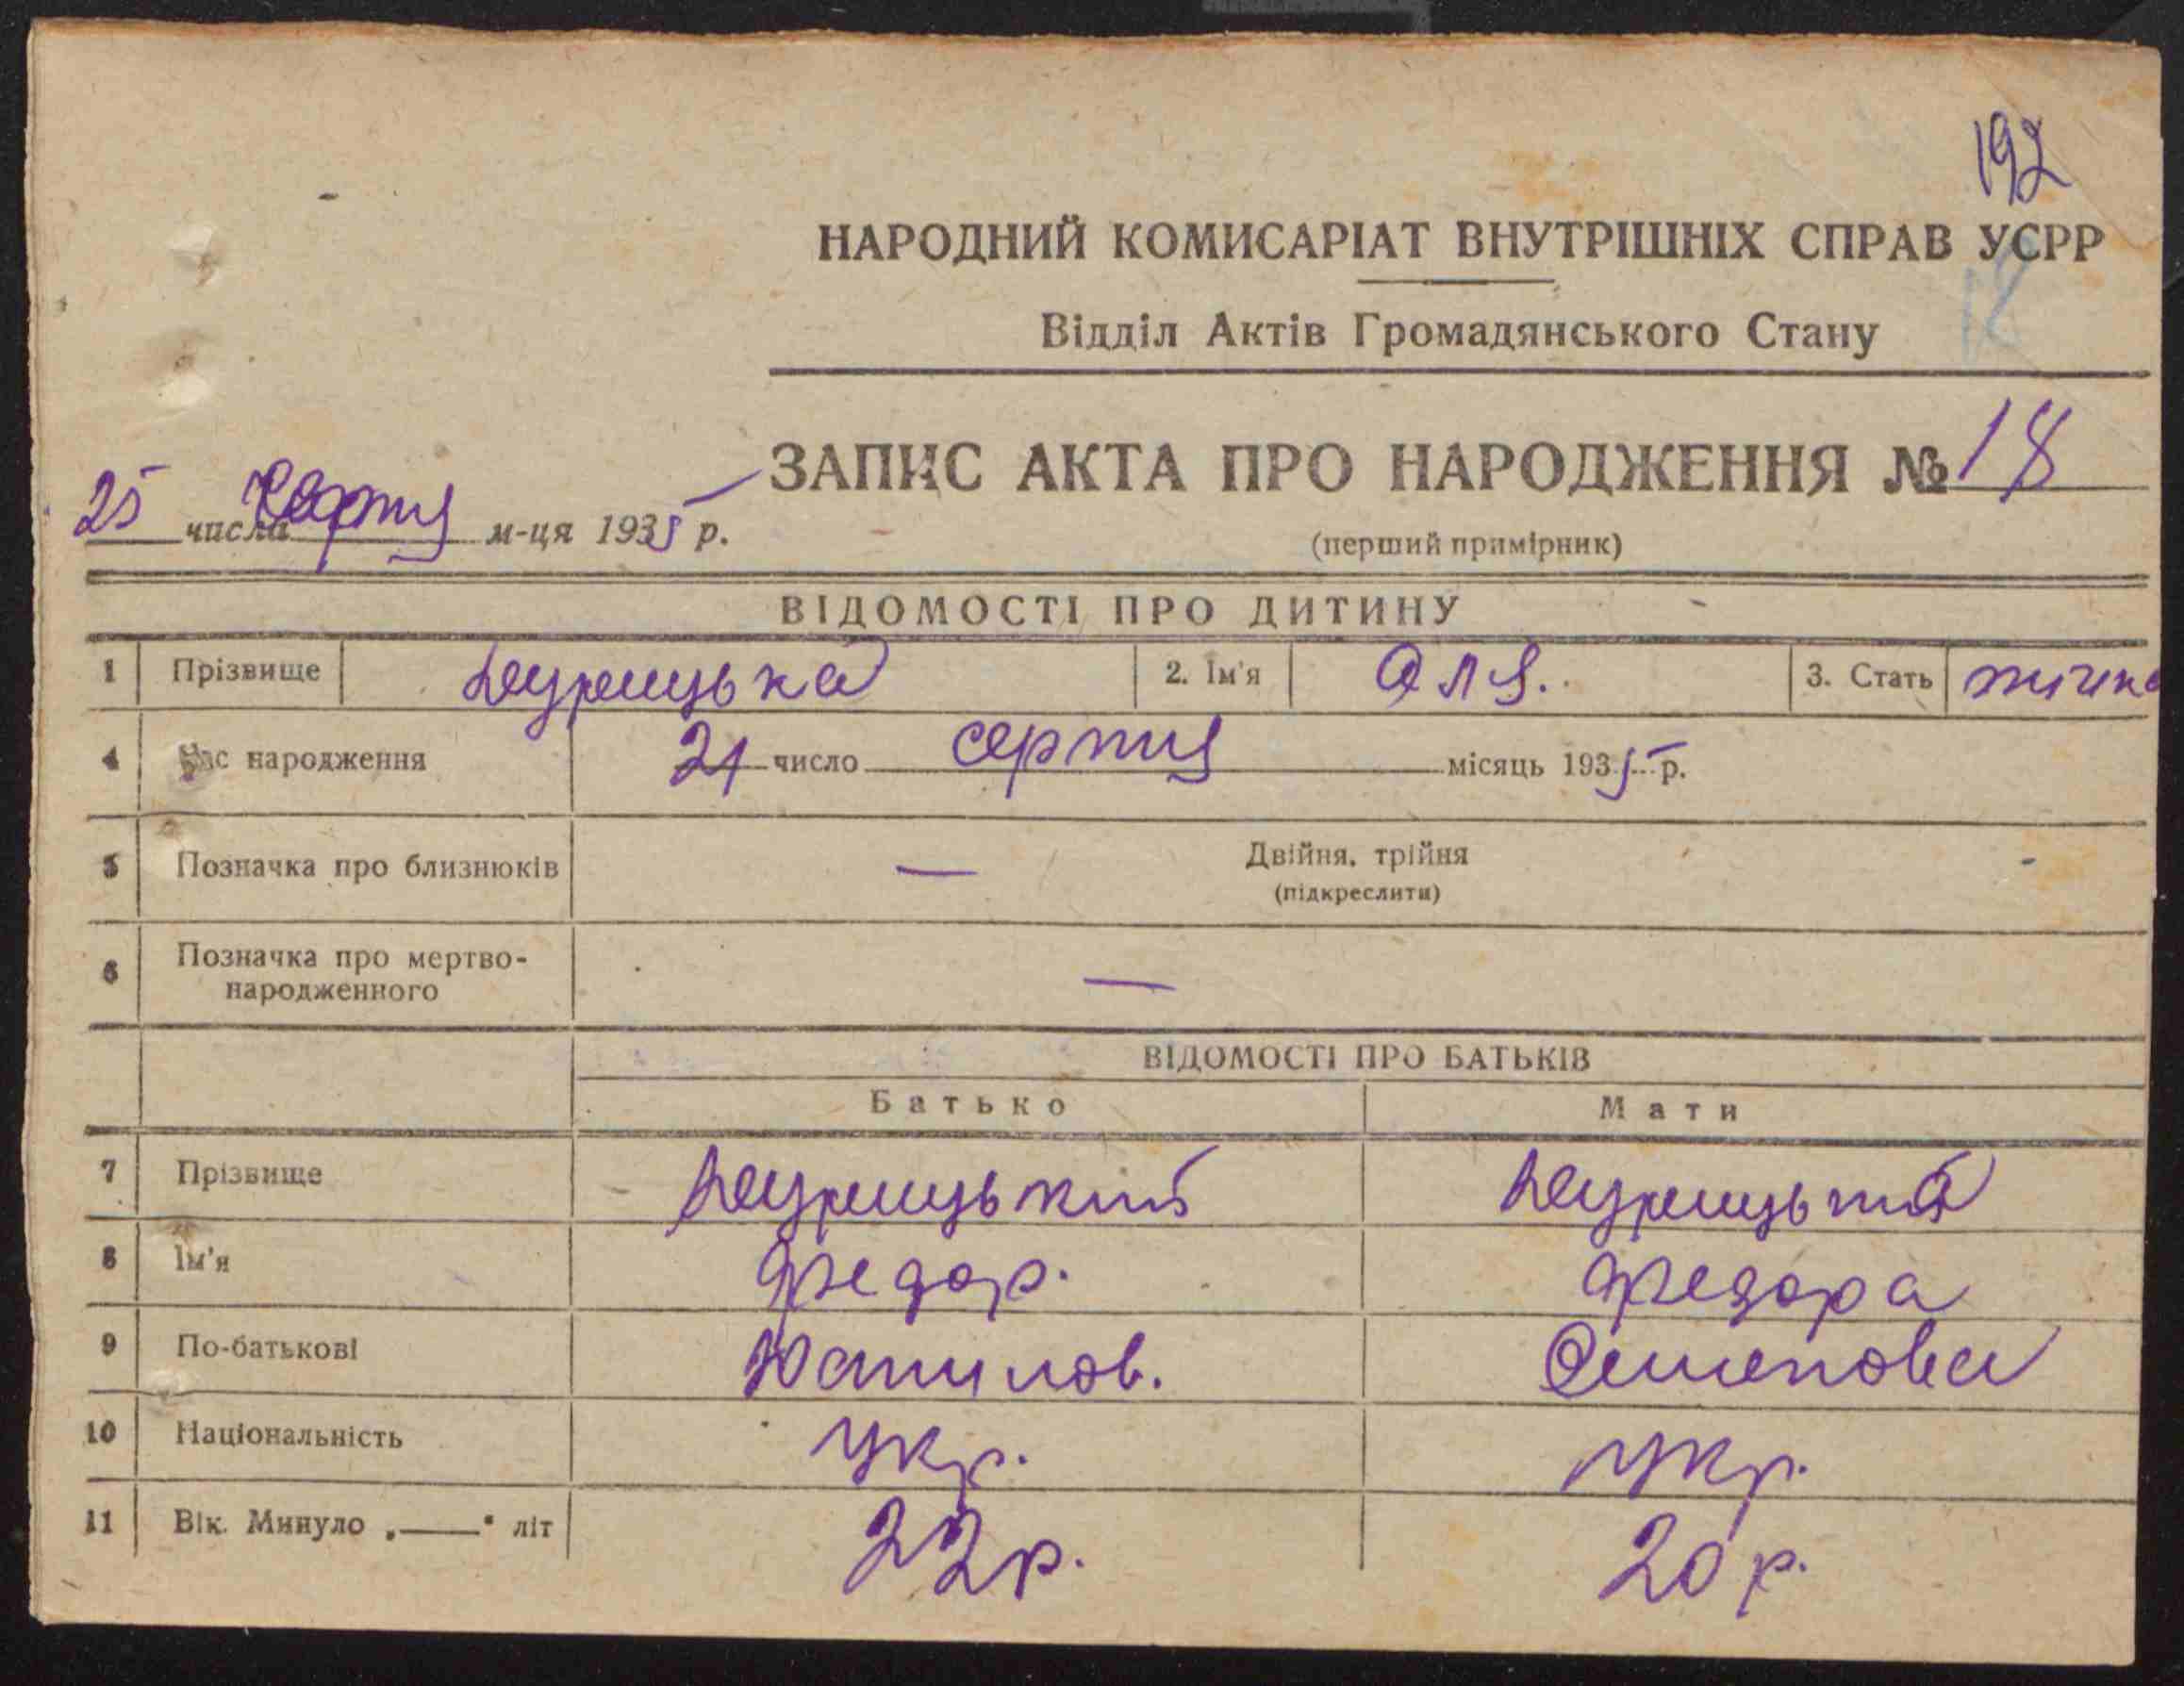 192
НАРОДНИЙ КОМИСАРІАТ ВНУТРІШНІХ СПРАВ УСРР
12
Відділ Актів Громадянського Стану
ЗАПИС АКТА ПРО НАРОДЖЕННЯ № 18
25 числа Серпня м-ця 1935 р.
(перший примірник)
ВІДОМОСТІ ПРО ДИТИНУ
1 Прізвище 2. Ім'я Оля. 3. Стать жіноча
4 Час народження 21 число серпня місяць 1935 р.
5 Позначка про близнюків — Двійня, трійня
(підкреслити)
6 Позначка про мертво-
народженного —
ВІДОМОСТІ ПРО БАТЬКІВ
Батько Мати
7 Прізвище
8 Ім'я Федор. Федора
9 По-батькові Данилов. Семеновна
10 Національність укр. укр.
11 Вік. Минуло „——" літ 22 р. 20 р.